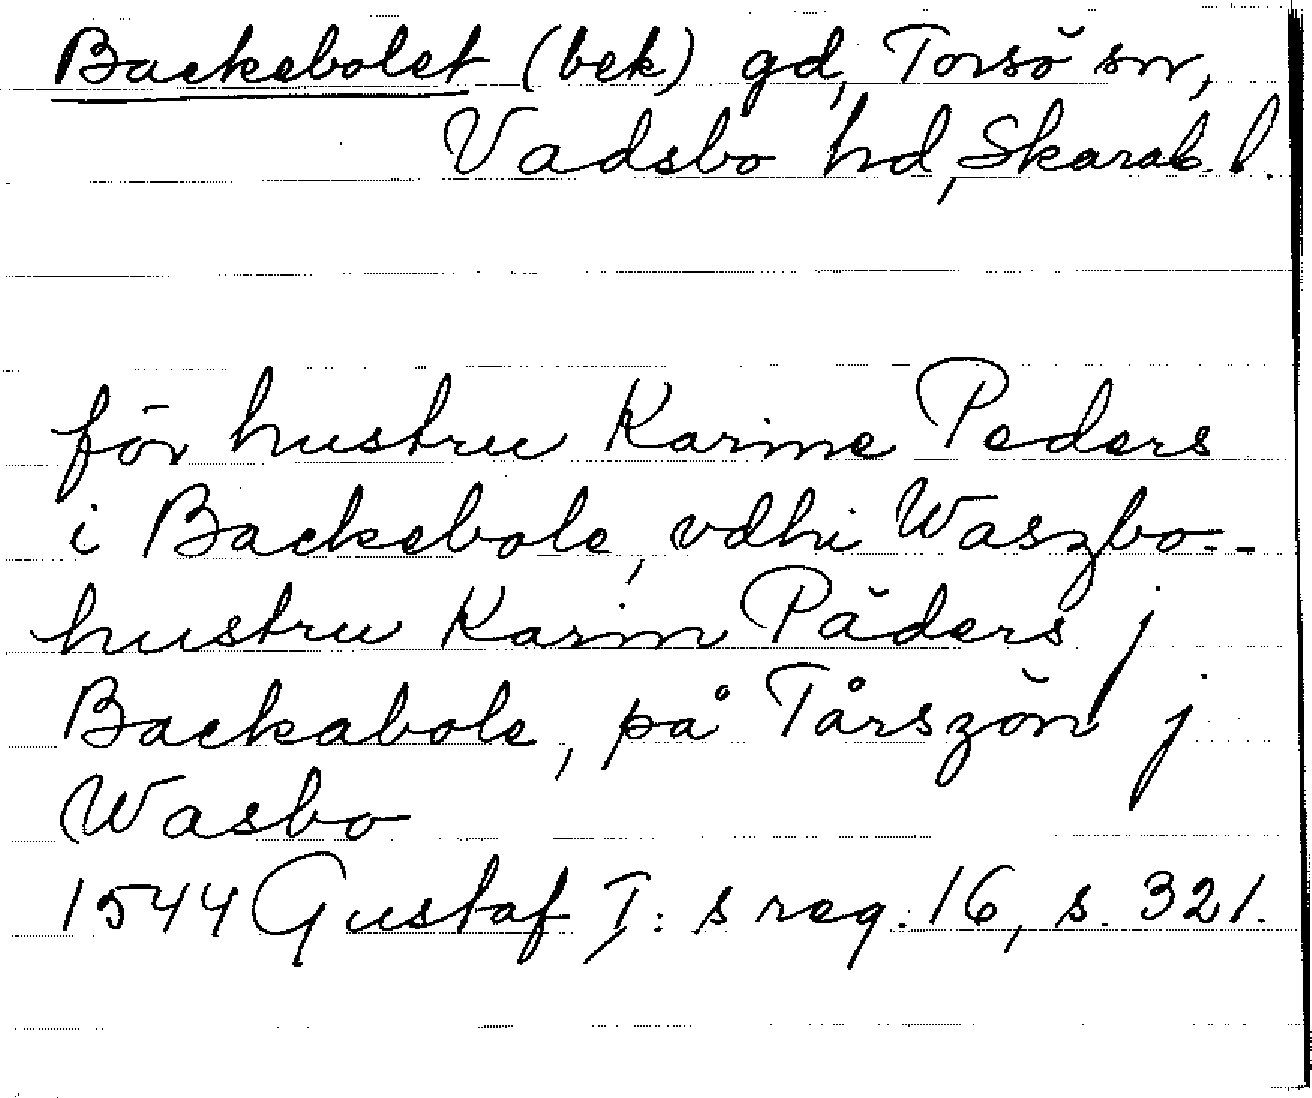 Backebolet (bek) gd, Torsö sn,
Vadsbo hd, Skarab. l.
för hustru Karine Peders
i Backebole, vdhi Waszbo--
hustru Karin Päders j
Backabole, på Tårszön j
Wasbo
1544 Gustaf I:s reg. 16, s. 321.